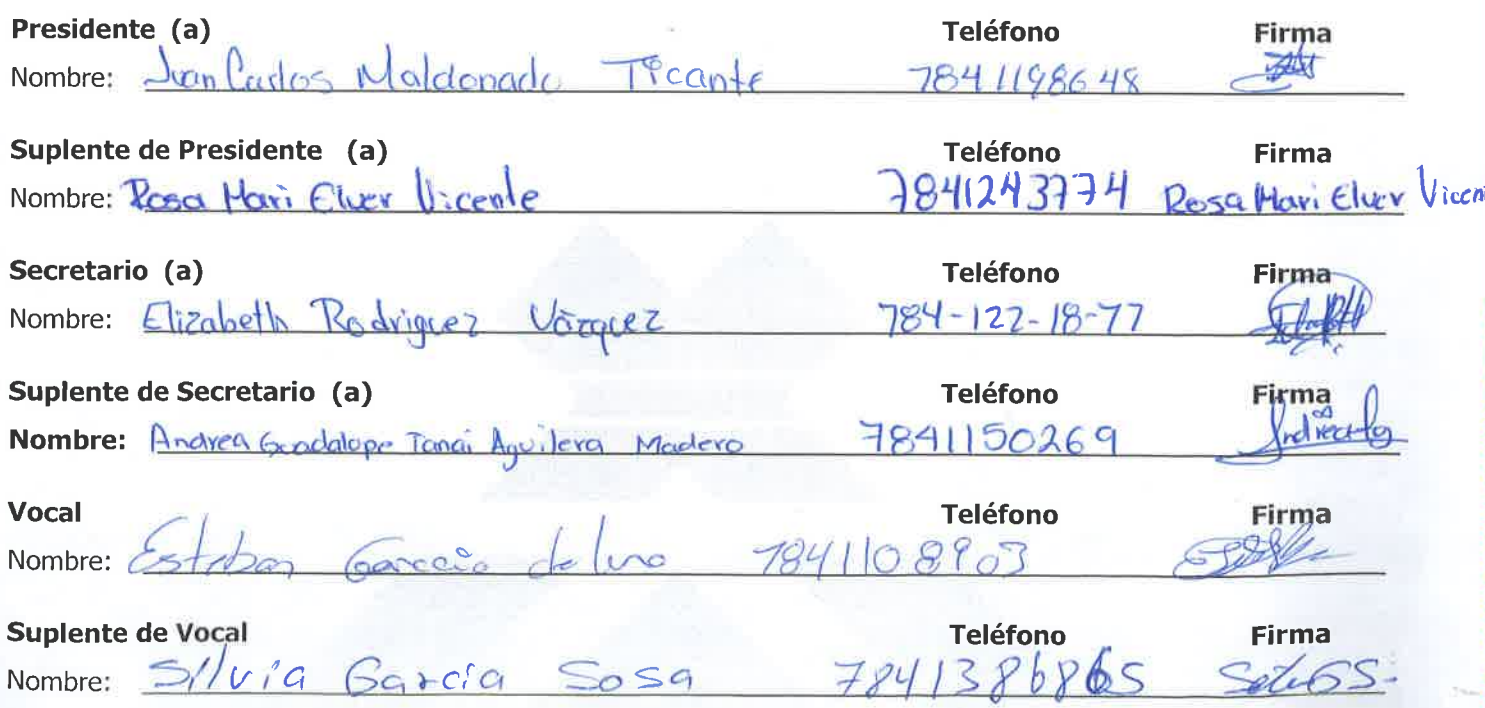 Presidente (a) Teléfono Firma
Nombre: Juan Carlos Maldonado Ticante 7841198648
Suplente de Presidente (a) Teléfono Firma
Nombre: Rosa Mari Elver Vicente 7841243774 Rosa Mari Elver Vicen
Secretario (a) Teléfono Firma
Nombre: Elizabeth Rodriguez Vázquez 784-122-18-77
Suplente de Secretario (a) Teléfono Firma
Nombre: Andrea Guadalupe Tanai Aguilera Madero 7841150269
Vocal Teléfono Firma
Nombre: Esteban García de 7841108903
Suplente de Vocal Teléfono Firma
Nombre: Silvia García Sosa 7841386865